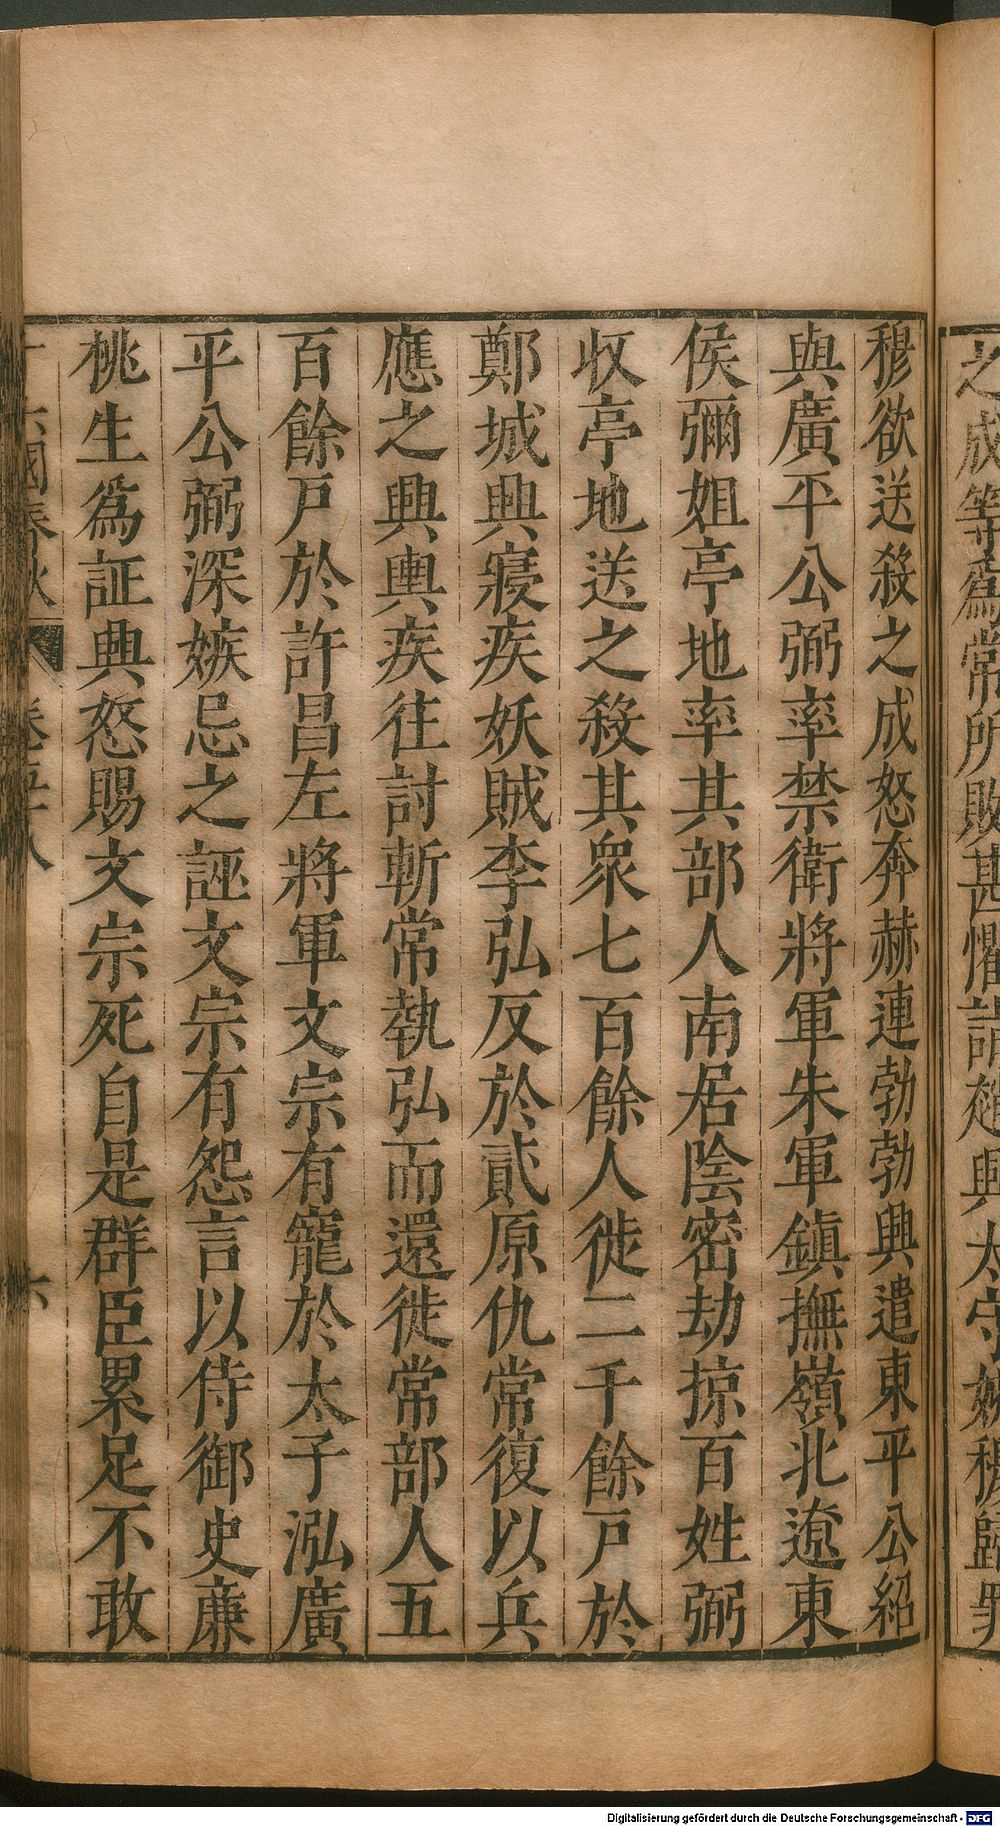 之成等爲常所敗甚懼請赵興太守姚穆歸罪
穆欲送殺之成怒奔赫連勃勃興遣東平公紹
與廣平公弼率禁衛將軍朱軍鎮撫嶺北遼東
侯彌姐亭地率其部人南居陰密劫掠百姓弼
収亭地送之殺其衆七百餘人徙二千餘戸於
鄭城興寢疾妖賊李弘反於貳原仇常復以兵
應之興輿疾往討斬常執弘而還徙常部人五
百餘戸於許昌左將軍文宗有寵於太子泓廣
平公弼深嫉忌之誣文宗有怨言以侍御史廉
桃生爲証興怒賜文宗死自是群臣累足不敢
十六國春秋 卷五十八 六
Digitalisierung gefördert durch die Deutsche Forschungsgemeinschaft - DFG